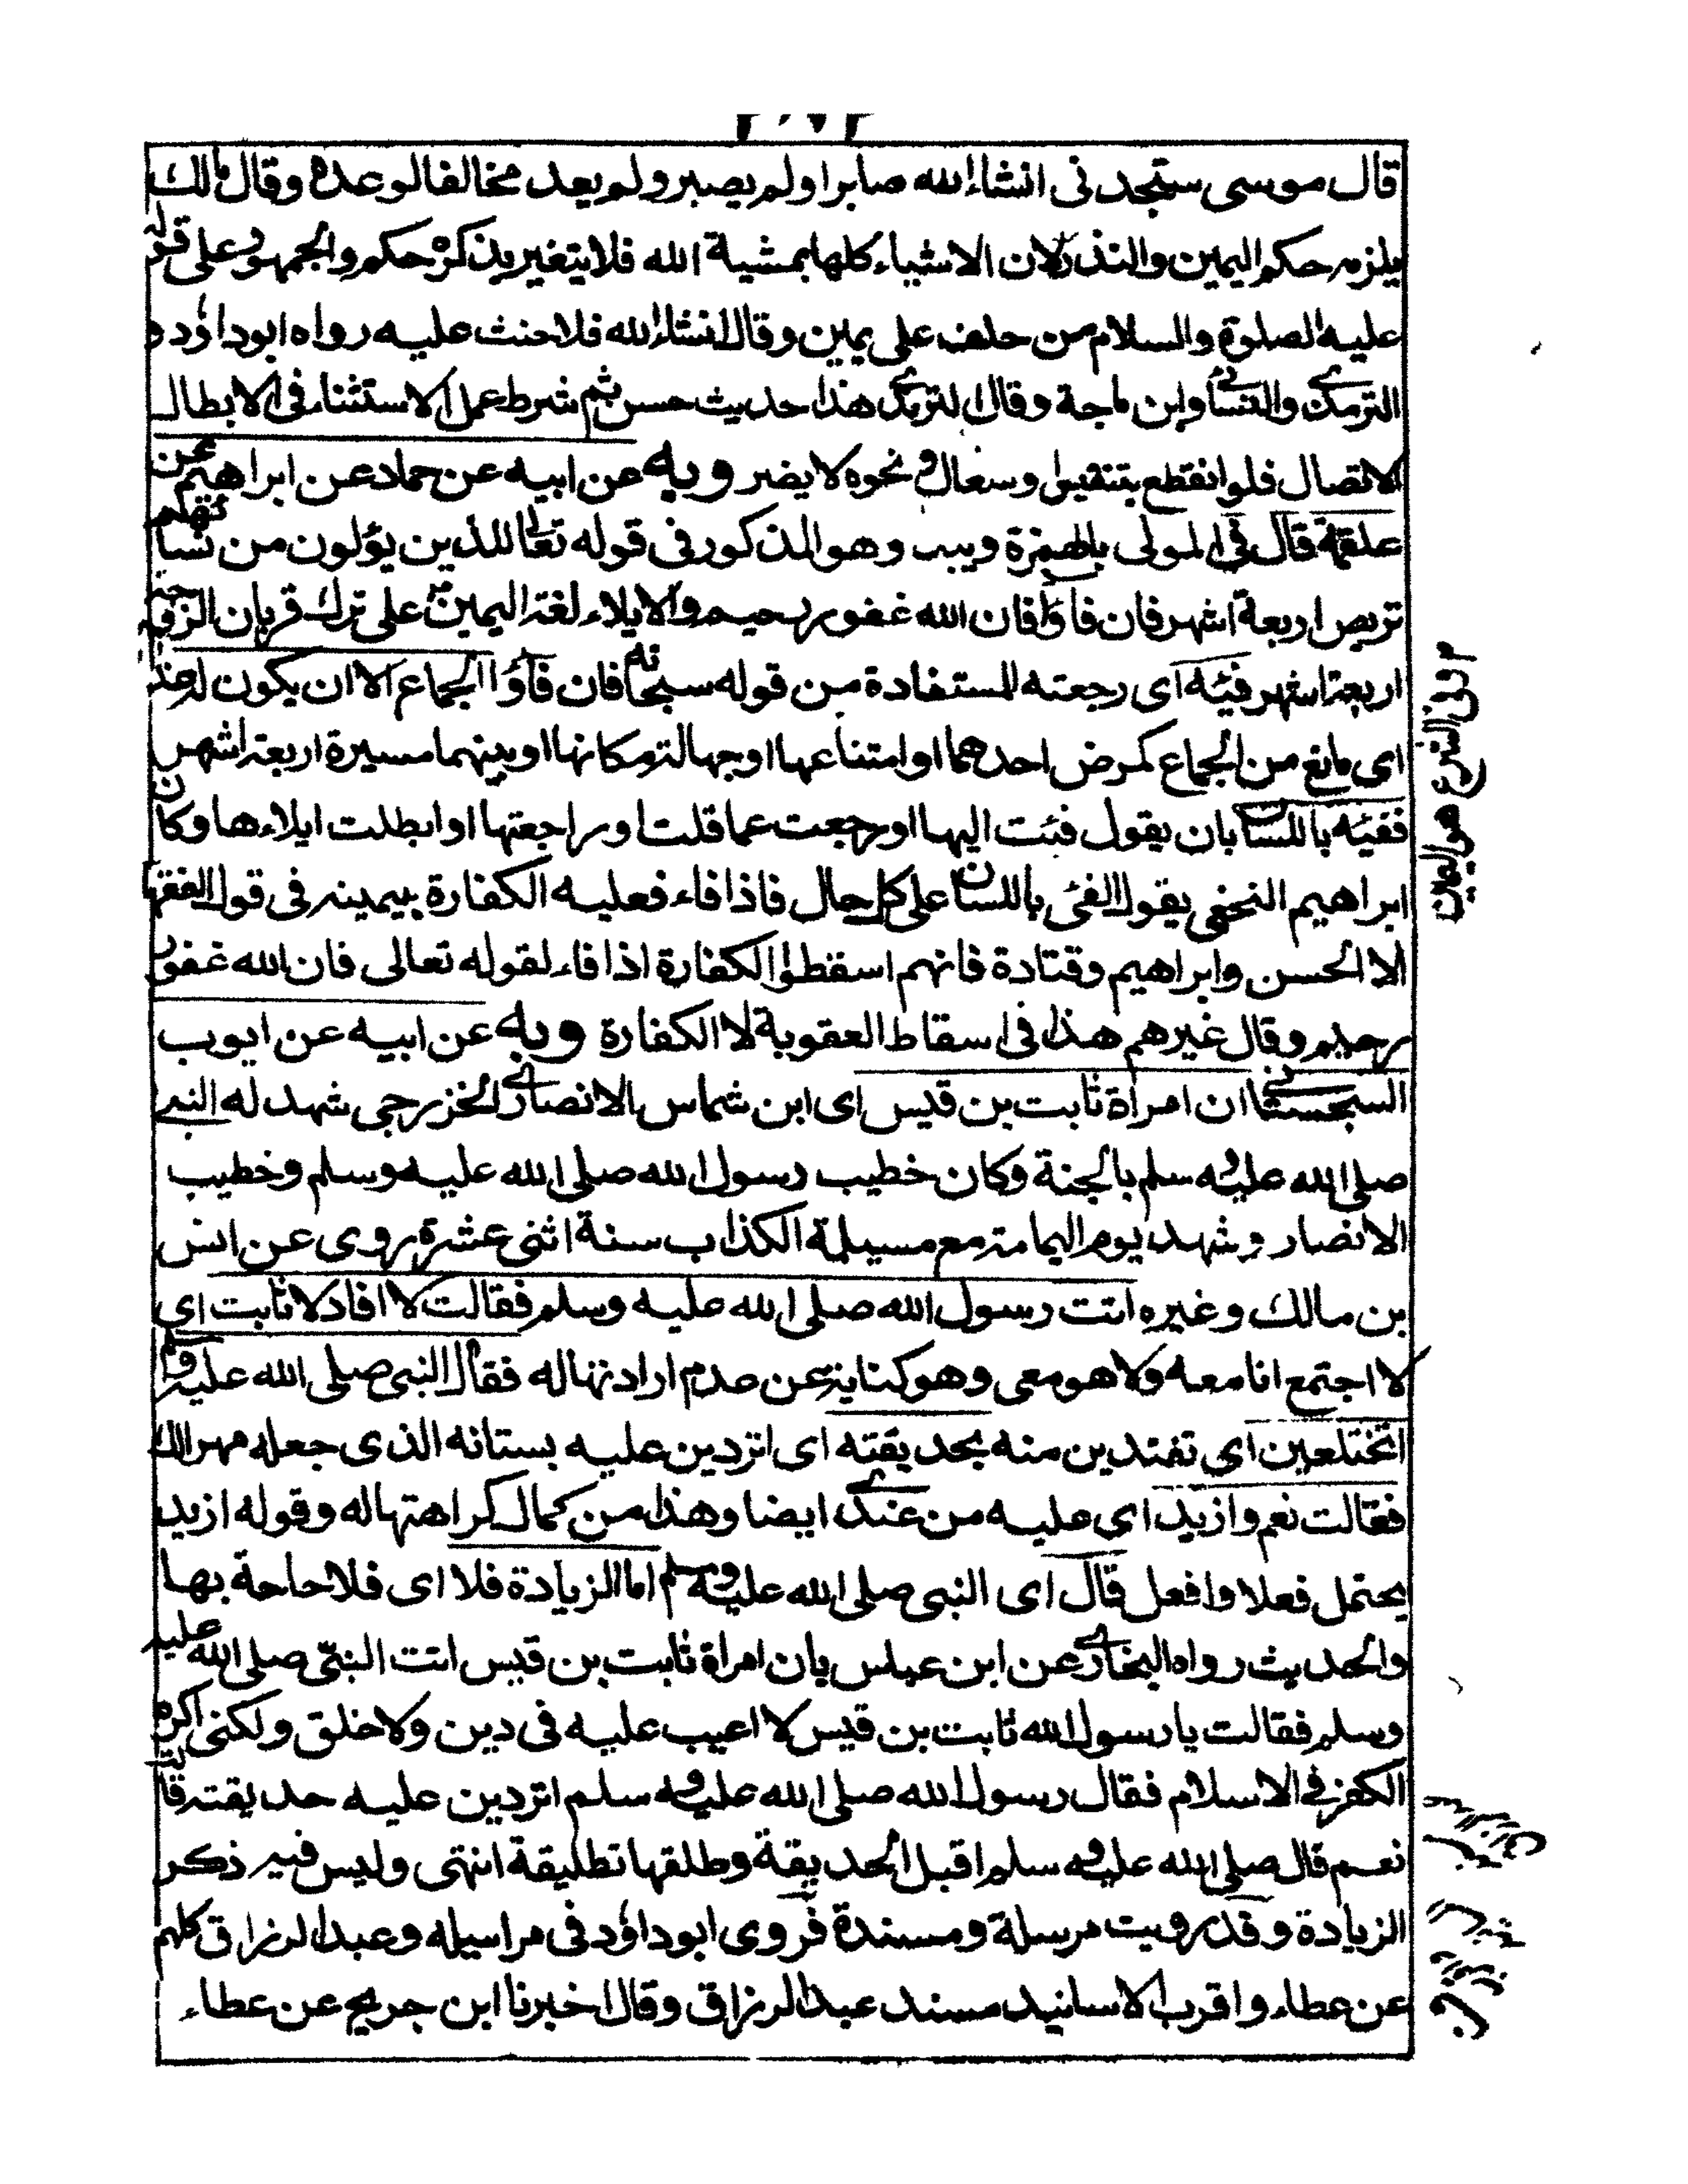 قال موسى ستجدنى انشاء الله صابرا ولم يصبر ولم يعد مخالفا لوعده وقال مالك
يلزمه حكم اليمين والنذر لان الاشياء كلها بمشية الله فلا يتغير بذكره حكم والجمهور على قوله
عليه الصلوة والسلام من حلف على يمين وقال انشاء الله فلا حنث عليه رواه ابوداؤد و
الترمذى والنسائى وابن ماجة وقال الترمذى هذا حديث حسن ثم شرط عمل الاستثناء فى الابطال
الاتصال فلو انقطع بتنفس او سعال و نحوه لا يضر وبه عن ابيه عن حماد عن ابراهيم عن
علقمة قال فى المولى بالهمزة ويبدل وهو المذكور فى قوله تعالى للذين يؤلون من نسائهم
تربص اربعة اشهر فان فاؤا فان الله غفور رحيم والايلاء لغة اليمين على ترك قربان الزوجة
اربعة اشهر فيئه اى رجعته المستفادة من قوله سبحانه فان فاؤا الجماع الا ان يكون له عذر
اى مانع من الجماع كمرض احدهما او امتناعها او جهالة مكانها او بينهما مسيرة اربعة اشهر
ففيئه باللسان بان يقول فئت اليها او رجعت عما قلت او راجعتها او ابطلت ايلاءها وكان
ابراهيم النخعى يقول الفئ باللسان على كل حال فاذا فاء فعليه الكفارة بيمينه فى قول الفقهاء
الا الحسن وابراهيم وقتادة فانهم اسقطوا الكفارة اذا فاء لقوله تعالى فان الله غفور
رحيم وقال غيرهم هذا فى اسقاط العقوبة لا الكفارة وبه عن ابيه عن ايوب
السجستانى ان امرأة ثابت بن قيس اى ابن شماس الانصارى الخزرجى شهد له النبى
صلى الله عليه و سلم بالجنة وكان خطيب رسول الله صلى الله عليه وسلم وخطيب
الانصار وشهد يوم اليمامة مع مسيلمة الكذاب سنة اثنى عشرة روى عن انس
بن مالك وغيره اتت رسول الله صلى الله عليه وسلم فقالت لا انا ولا ثابت اى
لا اجتمع انا معه ولا هو معى وهو كناية عن عدم ارادتها له فقال النبى صلى الله عليه وسلم
اتختلعين اى تفتدين منه بحديقته اى اتردين عليه بستانه الذى جعله مهرا لك
فقالت نعم وازيد اى عليه من عندى ايضا وهذا من كمال كراهتها له وقوله ازيد
يحتمل فعلا وافعل قال اى النبى صلى الله عليه وسلم اما الزيادة فلا اى فلا حاجة بها
والحديث رواه البخارى عن ابن عباس بان امرأة ثابت بن قيس اتت النبى صلى الله عليه
وسلم فقالت يا رسول الله ثابت بن قيس لا اعيب عليه فى دين ولا خلق ولكنى اكره
الكفر فى الاسلام فقال رسول الله صلى الله عليه و سلم اتردين عليه حديقته قالت
نعم قال صلى الله عليه و سلم اقبل الحديقة وطلقها تطليقة انتهى وليس فيه ذكر
الزيادة وقد رويت مرسلة ومسندة فروى ابوداؤد فى مراسيله وعبد الرزاق كلهم
عن عطاء واقرب الاسانيد مسند عبد الرزاق وقال اخبرنا ابن جريج عن عطاء